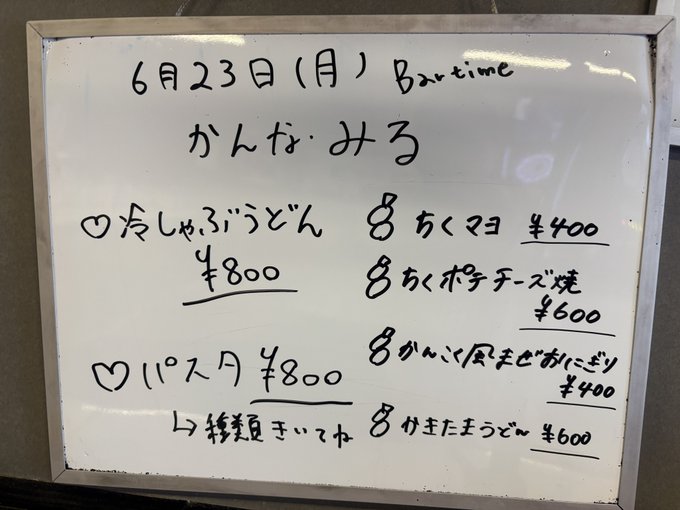 6月23日(月) Bar time
かんな・みる
♡冷しゃぶうどん
¥800
♡パスタ ¥800
↳種類きいてね
ちくマヨ ¥400
ちくポテチーズ焼
¥600
かんこく風まぜおにぎり
¥400
かきたまうどん ¥600